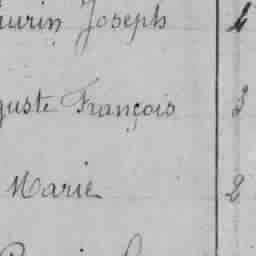 urin Joseph 4
guste François 3
Marie 2